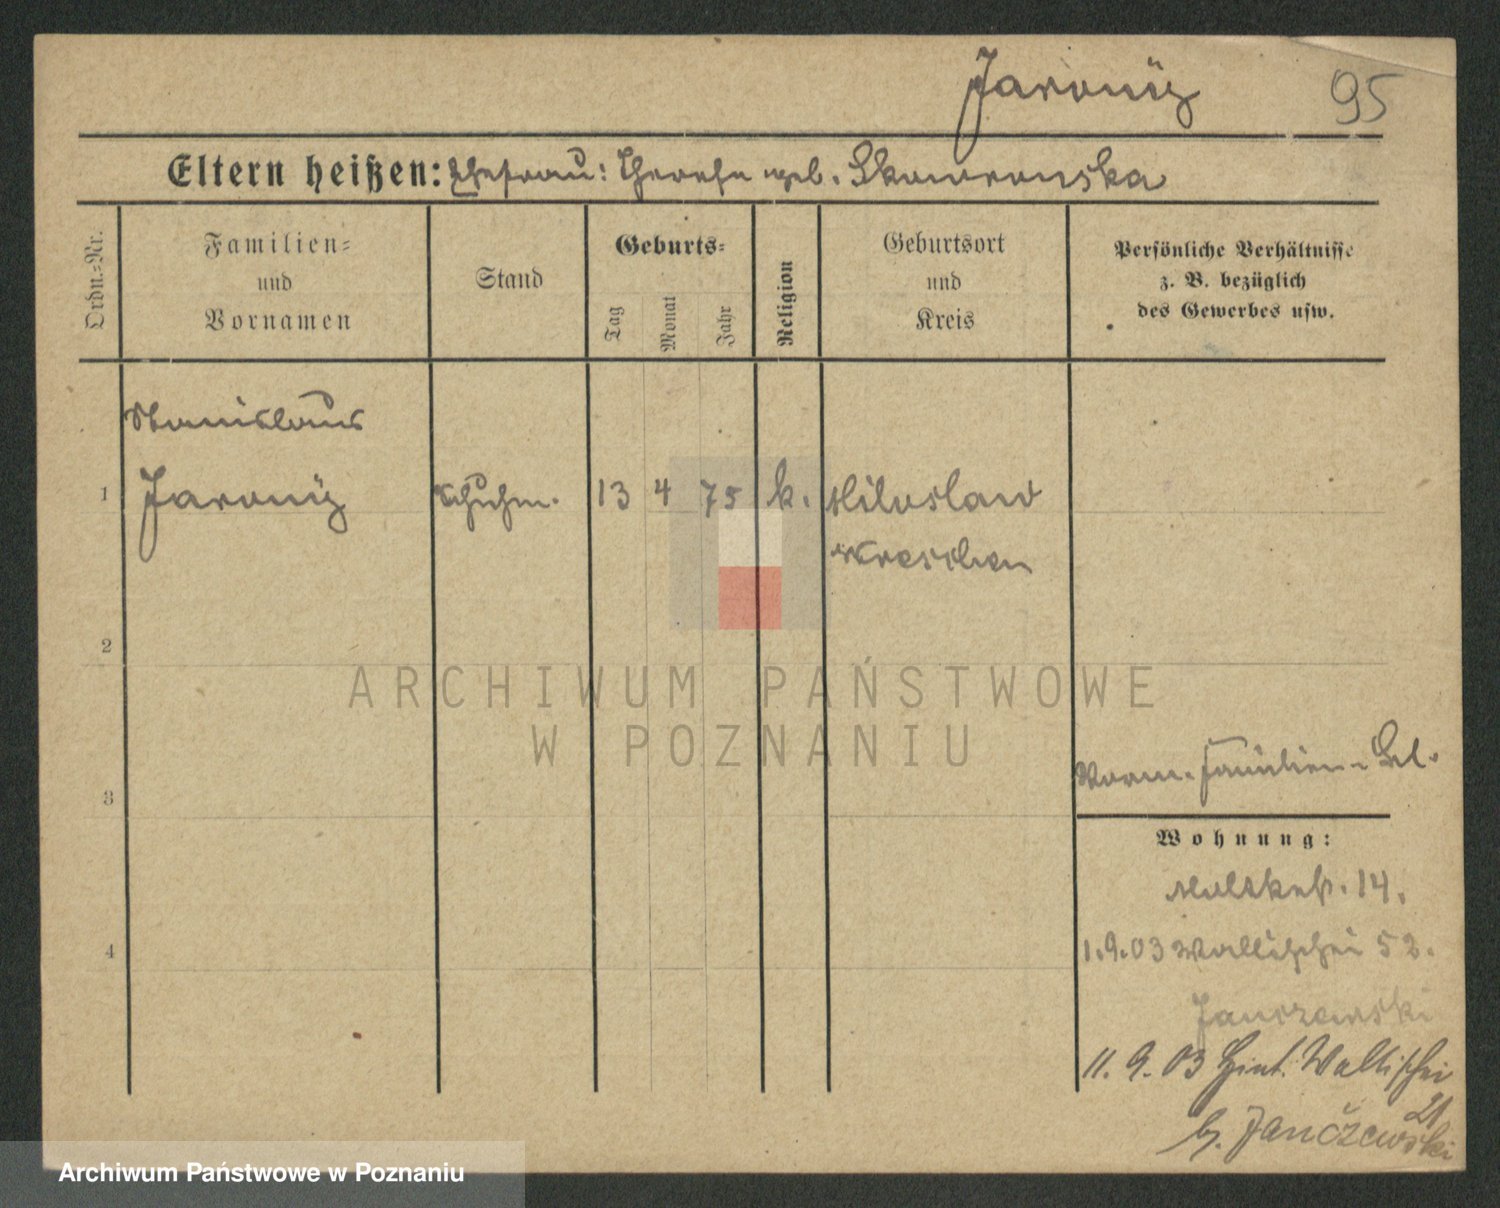 Jaroniÿ 95
Eltern heißen: Ehefrau: Therese geb. Skowronska
Ordn.-Nr.
Familien-
und
Vornamen
Stand
Geburts-
Tag
Monat
Jahr
Religion
Geburtsort
und
Kreis
Persönliche Verhältnisse
z. B. bezüglich
des Gewerbes usw.
Stanislaus
1 Jaroniÿ Schuhm. 13 4 75 k. Miloslaw
Wreschen
2
ARCHIWUM PAŃSTWOWE
W POZNANIU
Familien-
3
Wohnung:
Moltkestr. 14.
4 1.9.03 Wallischei 52.
Janczewski
11.9.03 Hint. Wallischei
21
b. Janczewski
Archiwum Państwowe w Poznaniu